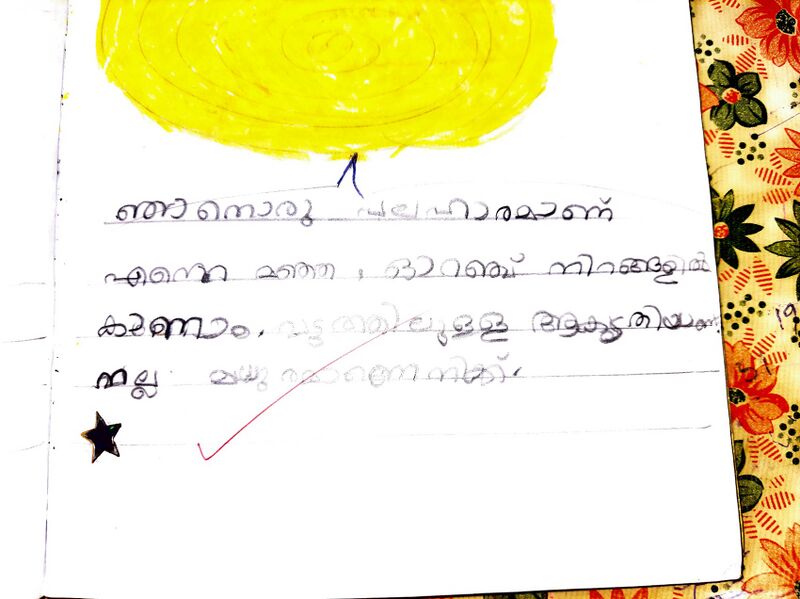 ഞാനൊരു പലഹാരമാണ്
എന്നെ മഞ്ഞ, ഓറഞ്ച് നിറങ്ങളിൽ
കാണാം. വട്ടത്തിലുള്ള ആകൃതിയാണ്.
നല്ല മധുരമാണെനിക്ക്.